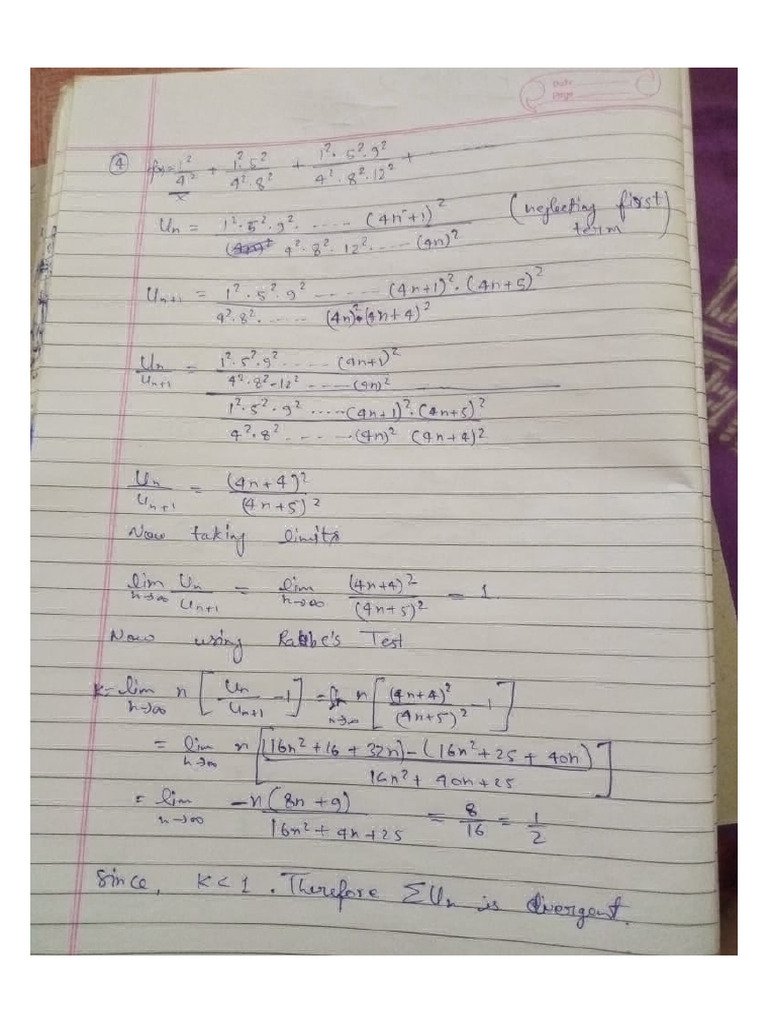 Date
Page
④ 1²/4² + 1²·5²/4²·8² + 1²·5²·9²/4²·8²·12² + ........
Un = 1²·5²·9²· ..... (4n+1)² / 4²·8²·12²·....(4n)² (neglecting first term)
Un+1 = 1²·5²·9² ..... (4n+1)²·(4n+5)² / 4²·8²· ..... (4n)²·(4n+4)²
Un/Un+1 = 1²·5²·9² ..... (4n+1)² / 4²·8²·12² .....(4n)²
1²·5²·9² .....(4n+1)²·(4n+5)² / 4²·8² ......(4n)² (4n+4)²
Un/Un+1 = (4n+4)²/(4n+5)²
Now taking limits
lim n→∞ Un/Un+1 = lim n→∞ (4n+4)²/(4n+5)² = 1
Now using Raabe's Test
K = lim n→∞ n[Un/Un+1 - 1] = lim n→∞ n[(4n+4)²/(4n+5)² - 1]
= lim n→∞ n[(16n²+16+32n)-(16n²+25+40n) / 16n²+40n+25]
= lim n→∞ -n(8n+9) / 16n²+4n+25 = 8/16 = 1/2
Since, K<1. Therefore ΣUn is divergent.